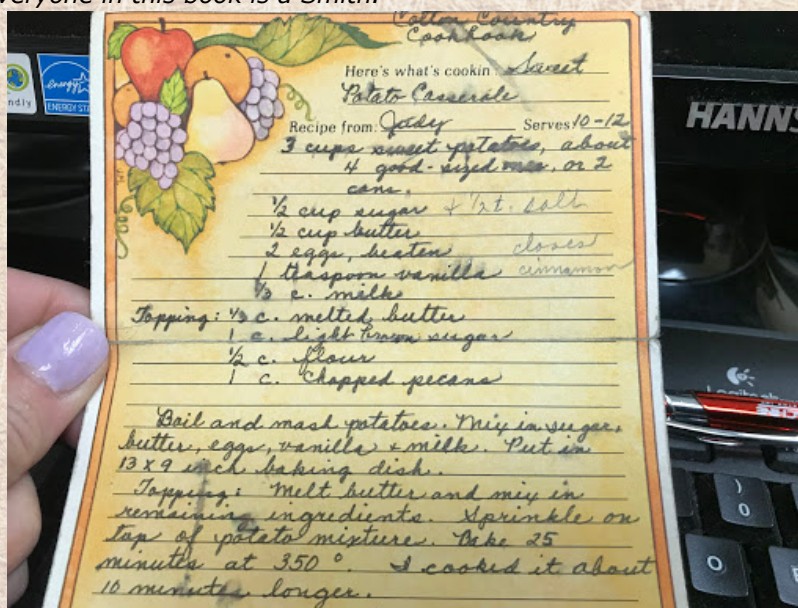 everyone in this book is a Smith.
Cotton Country
Cookbook
Here's what's cookin: Sweet
Potato Casserole
Recipe from: Judy Serves 10-12
3 cups sweet potatoes, about
4 good-sized ones, or 2
cans.
1/2 cup sugar + 1/2 t. salt
1/2 cup butter
2 eggs, beaten cloves
1 teaspoon vanilla cinnamon
1/3 c. milk
Topping: 1/3 c. melted butter
1 c. light brown sugar
1/2 c. flour
1 c. chopped pecans
Boil and mash potatoes. Mix in sugar,
butter, eggs, vanilla + milk. Put in
13 x 9 inch baking dish.
Topping: Melt butter and mix in
remaining ingredients. Sprinkle on
top of potato mixture. Bake 25
minutes at 350°. I cooked it about
10 minutes longer.
energy
ENERGY STAR
ndly
HANNS
Logitech
)
0
O